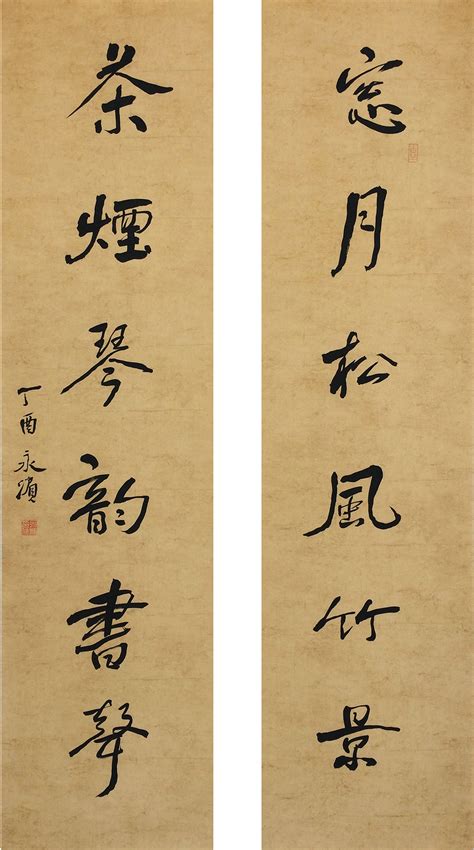 窓月松風竹景
茶煙琴韵書聲
丁酉永